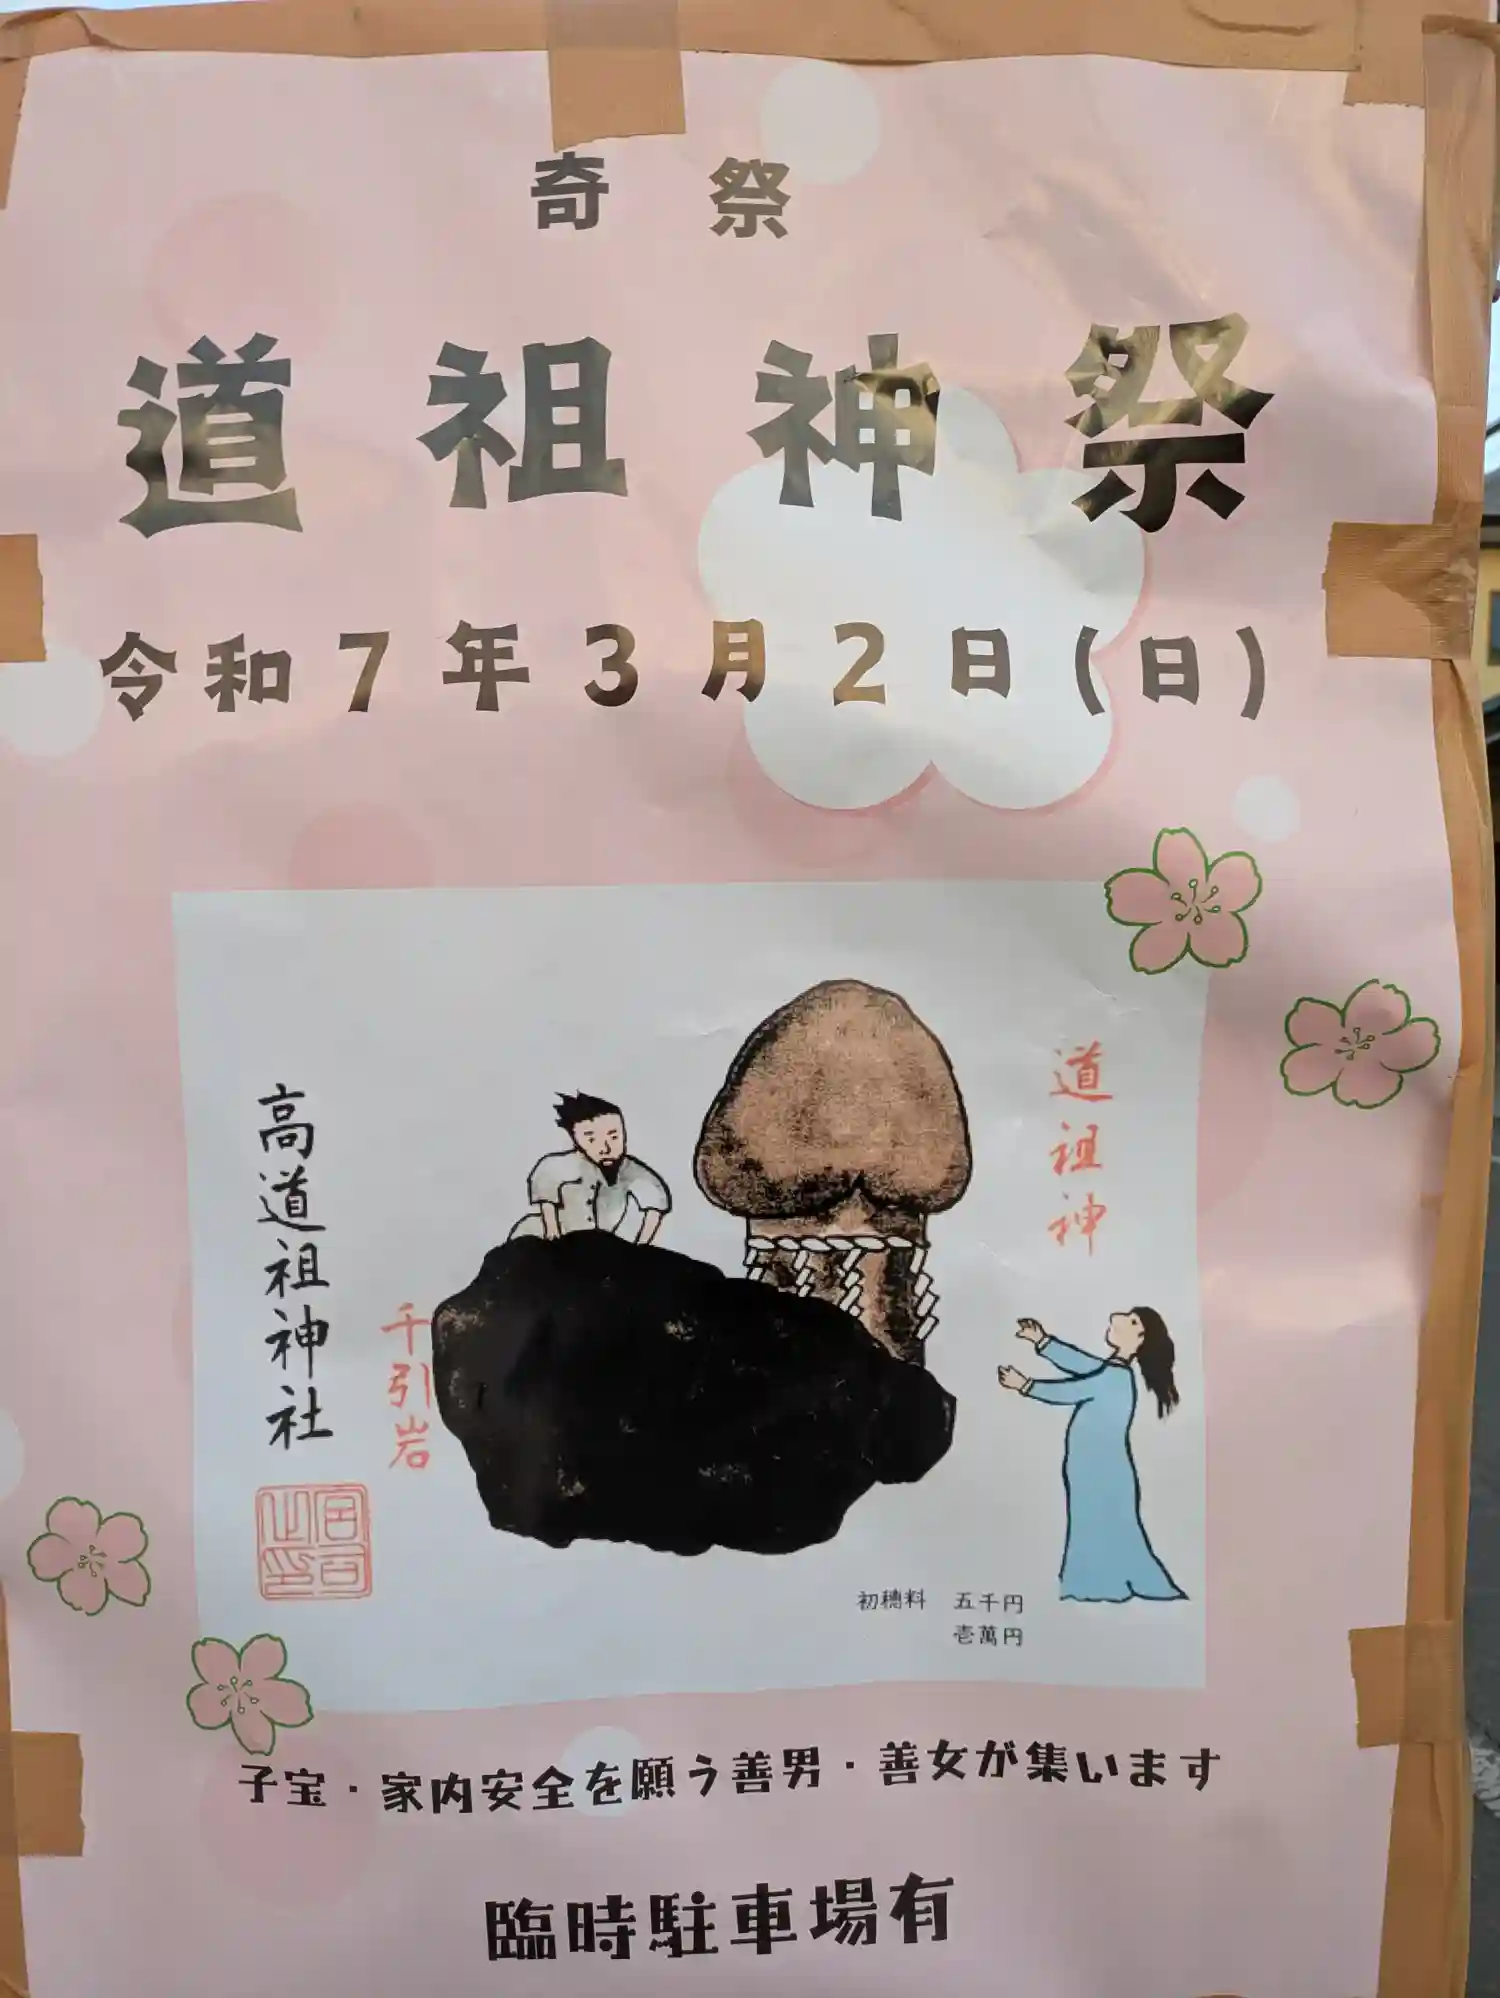 奇祭
道祖神祭
令和7年3月2日(日)
道祖神
千引岩
高道祖神社
初穂料 五千円
壱萬円
子宝・家内安全を願う善男・善女が集います
臨時駐車場有